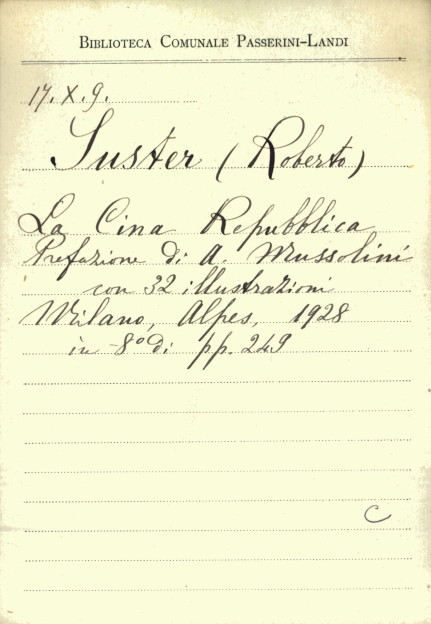 BIBLIOTECA COMUNALE PASSERINI-LANDI
17. X. 9.
Suster (Roberto)
La Cina Repubblica
Prefazione di A. Mussolini
con 32 illustrazioni
Milano, Alpes, 1928
in-8º di pp. 249
C